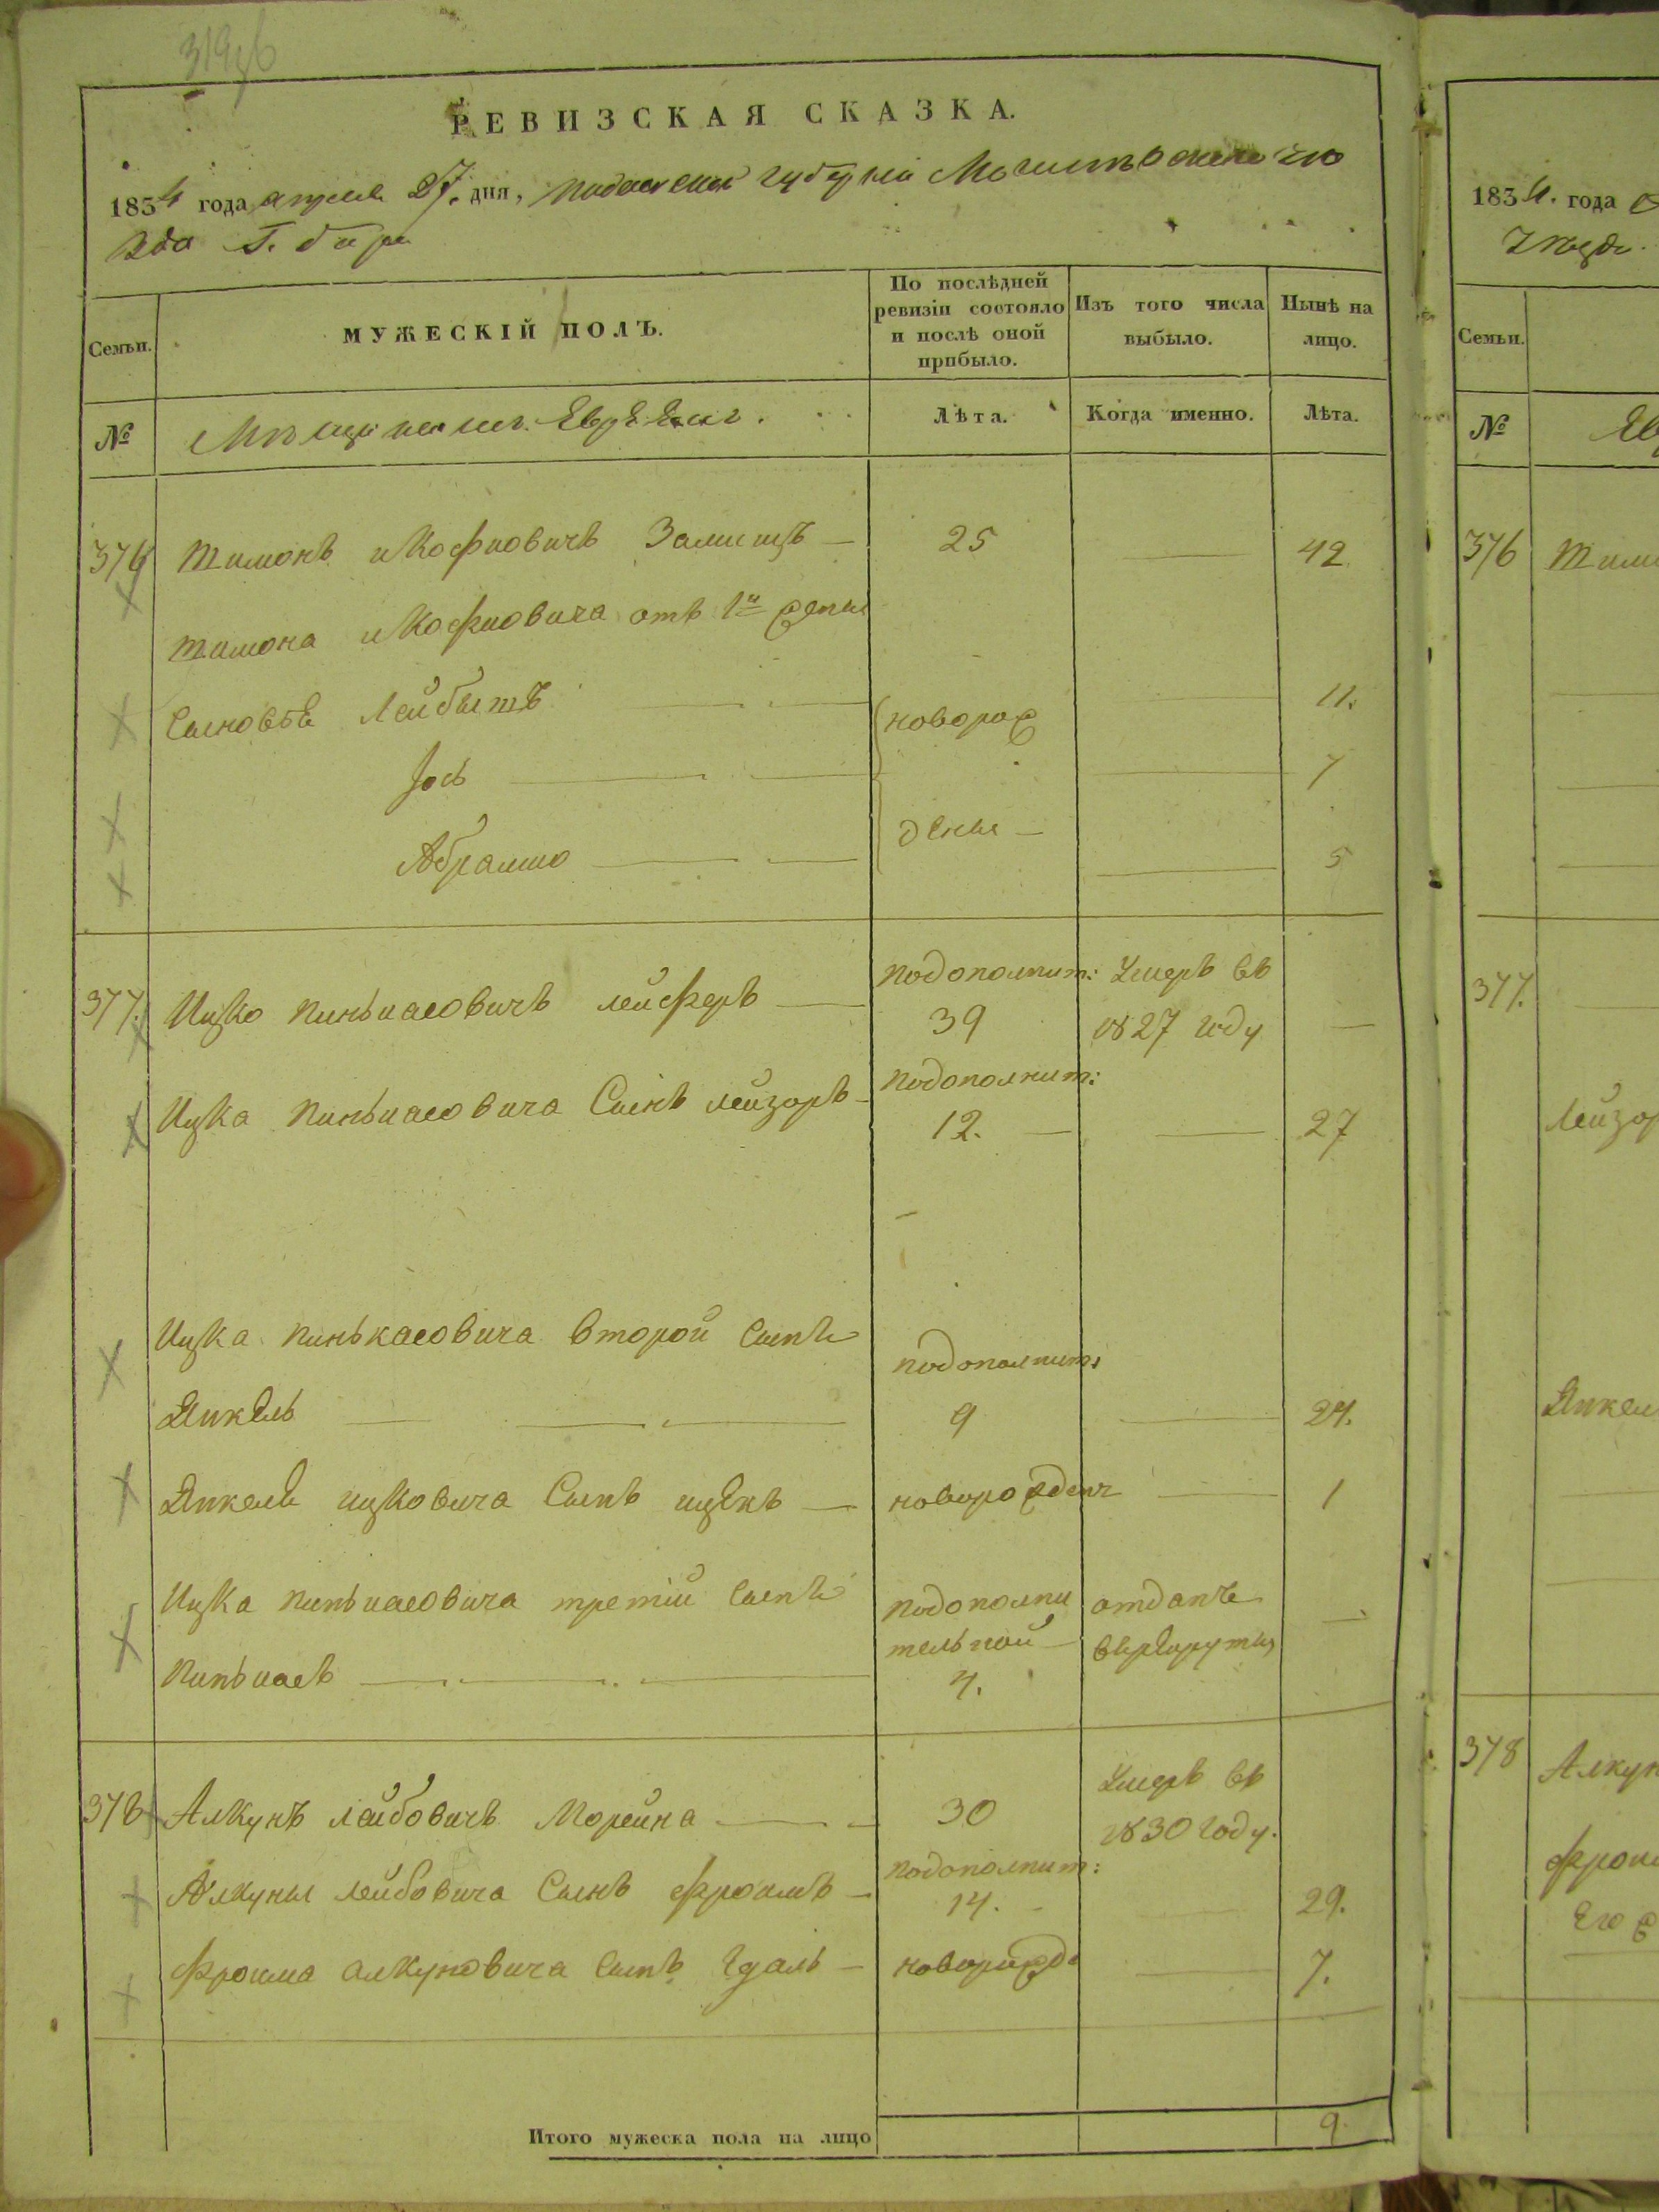 319об
РЕВИЗСКАЯ СКАЗКА.
1834 года апреля 27. дня, Подольской губерніи Могилевского уѣ
зда Г. бара
Семьи.
МУЖЕСКІЙ ПОЛЪ.
По послѣдней ревизіи состояло и послѣ оной прибыло.
Изъ того числа выбыло.
Нынѣ на лицо.
№
Мѣщане изъ Евреевъ.
Лѣта.
Когда именно.
Лѣта.
376 Шимонъ Ицковичъ — 25 — 42
Шимона Ицковича отъ 1й жены
Сыновья Лейбышъ — — новорож — 11.
Іось — — — 7
Абрамко — — денные — — 5
377. Ицко Пинькасовичъ Лейферъ — подополнит: 39 Умеръ въ 1827 году —
Ицка Пинькасовича Сынъ Лейзоръ — подополнит: 12. — — 27
Ицка Пинькасовича второй сынъ
Янкель — — — подополнит: 9 — 24.
Янкеля Ицковича Сынъ — новорожден — 1
Ицка Пинькасовича третій сынъ
Пинькасъ — — — подополнительной — 4. отданъ в рекруты —
378 Алкунъ Лейбовичъ Морейна — — 30 Умеръ въ 1830 году.
Алкуны Лейбовича Сынъ Фроимъ — подополнит: 14. — — 29.
Фроима Алкуновича сынъ Гдаль — новорожд — 7.
Итого мужеска пола на лицо 9.
1834. года
уѣзда
Семьи.
№ Ев
376
377.
Лейзор
Янкел
378 Алкун
Фроим
Его